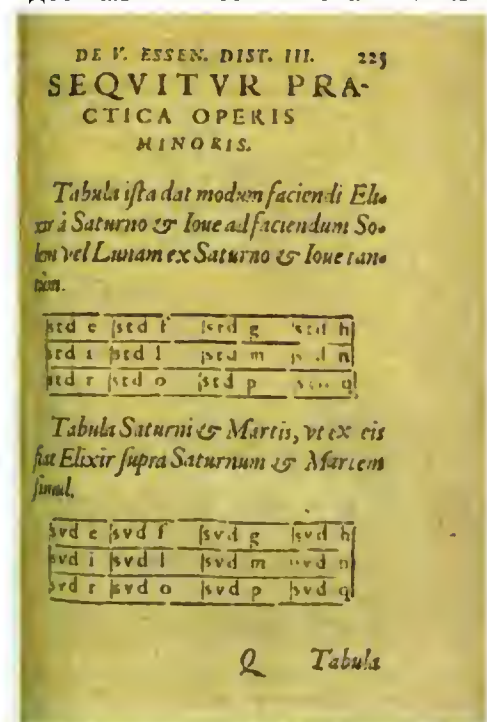 DE V. ESSEN. DIST. III. 225
SEQVITVR PRA-
CTICA OPERIS
MINORIS.
Tabula ista dat modum faciendi Eli-
xir à Saturno & Ioue ad faciendum So-
lem vel Lunam ex Saturno & Ioue tan-
tùm.
std e std f std g std h
std i std l std m n
std r std o std p q
Tabula Saturni & Martis, vt ex eis
fiat Elixir supra Saturnum & Martem
simul.
svd e svd f svd g svd h
svd i svd l svd m svd n
svd r svd o svd p svd q
Q Tabula